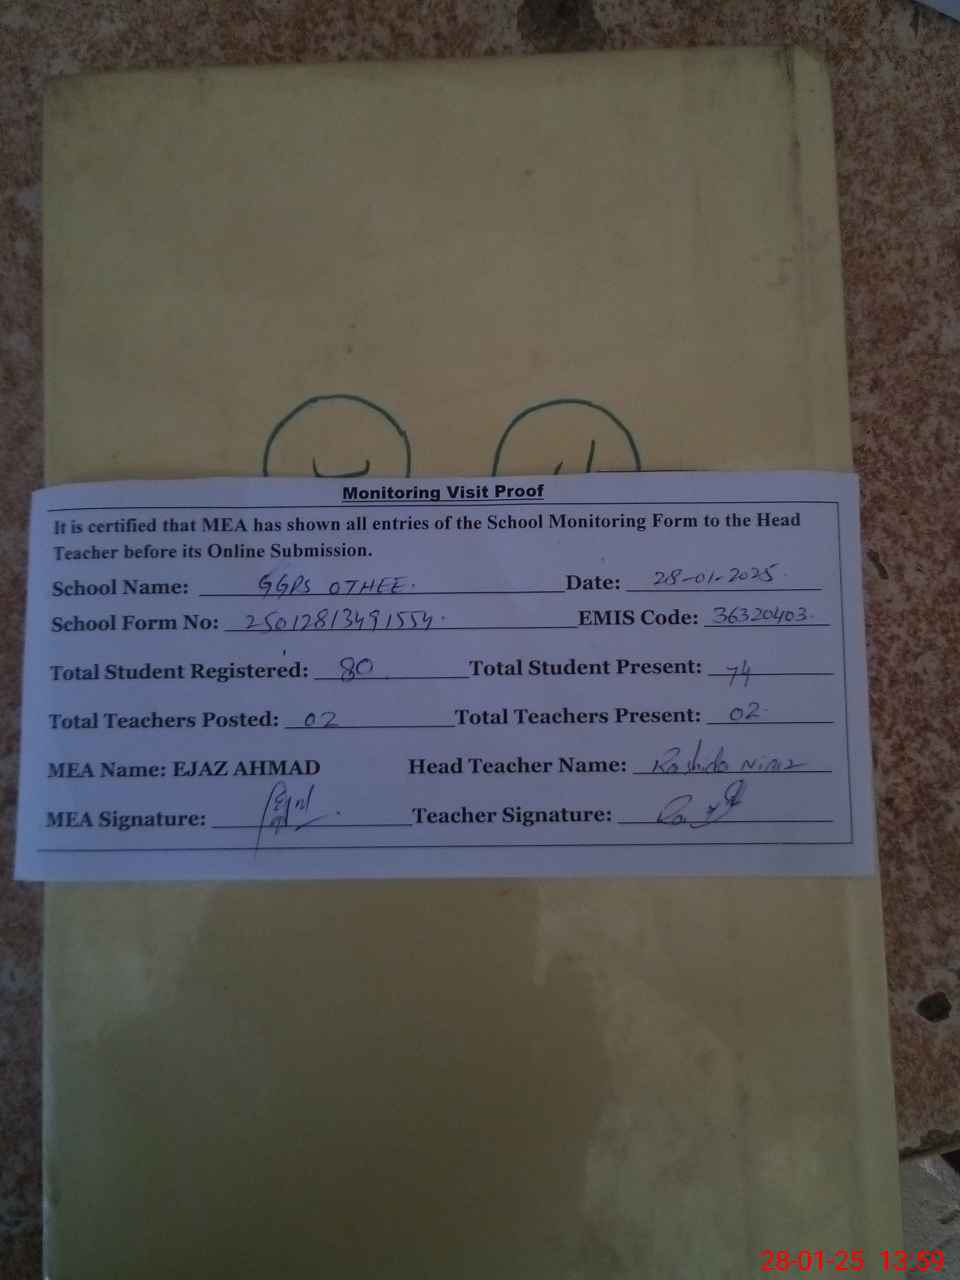 Monitoring Visit Proof
It is certified that MEA has shown all entries of the School Monitoring Form to the Head
Teacher before its Online Submission.
School Name: GGPS OTHEE. Date: 28-01-2025.
School Form No: 25012813491554. EMIS Code: 36320403.
Total Student Registered: 80 Total Student Present: 74
Total Teachers Posted: 02 Total Teachers Present: 02
MEA Name: EJAZ AHMAD Head Teacher Name: Rashida Niaz
MEA Signature: Teacher Signature:
28-01-25 13:59